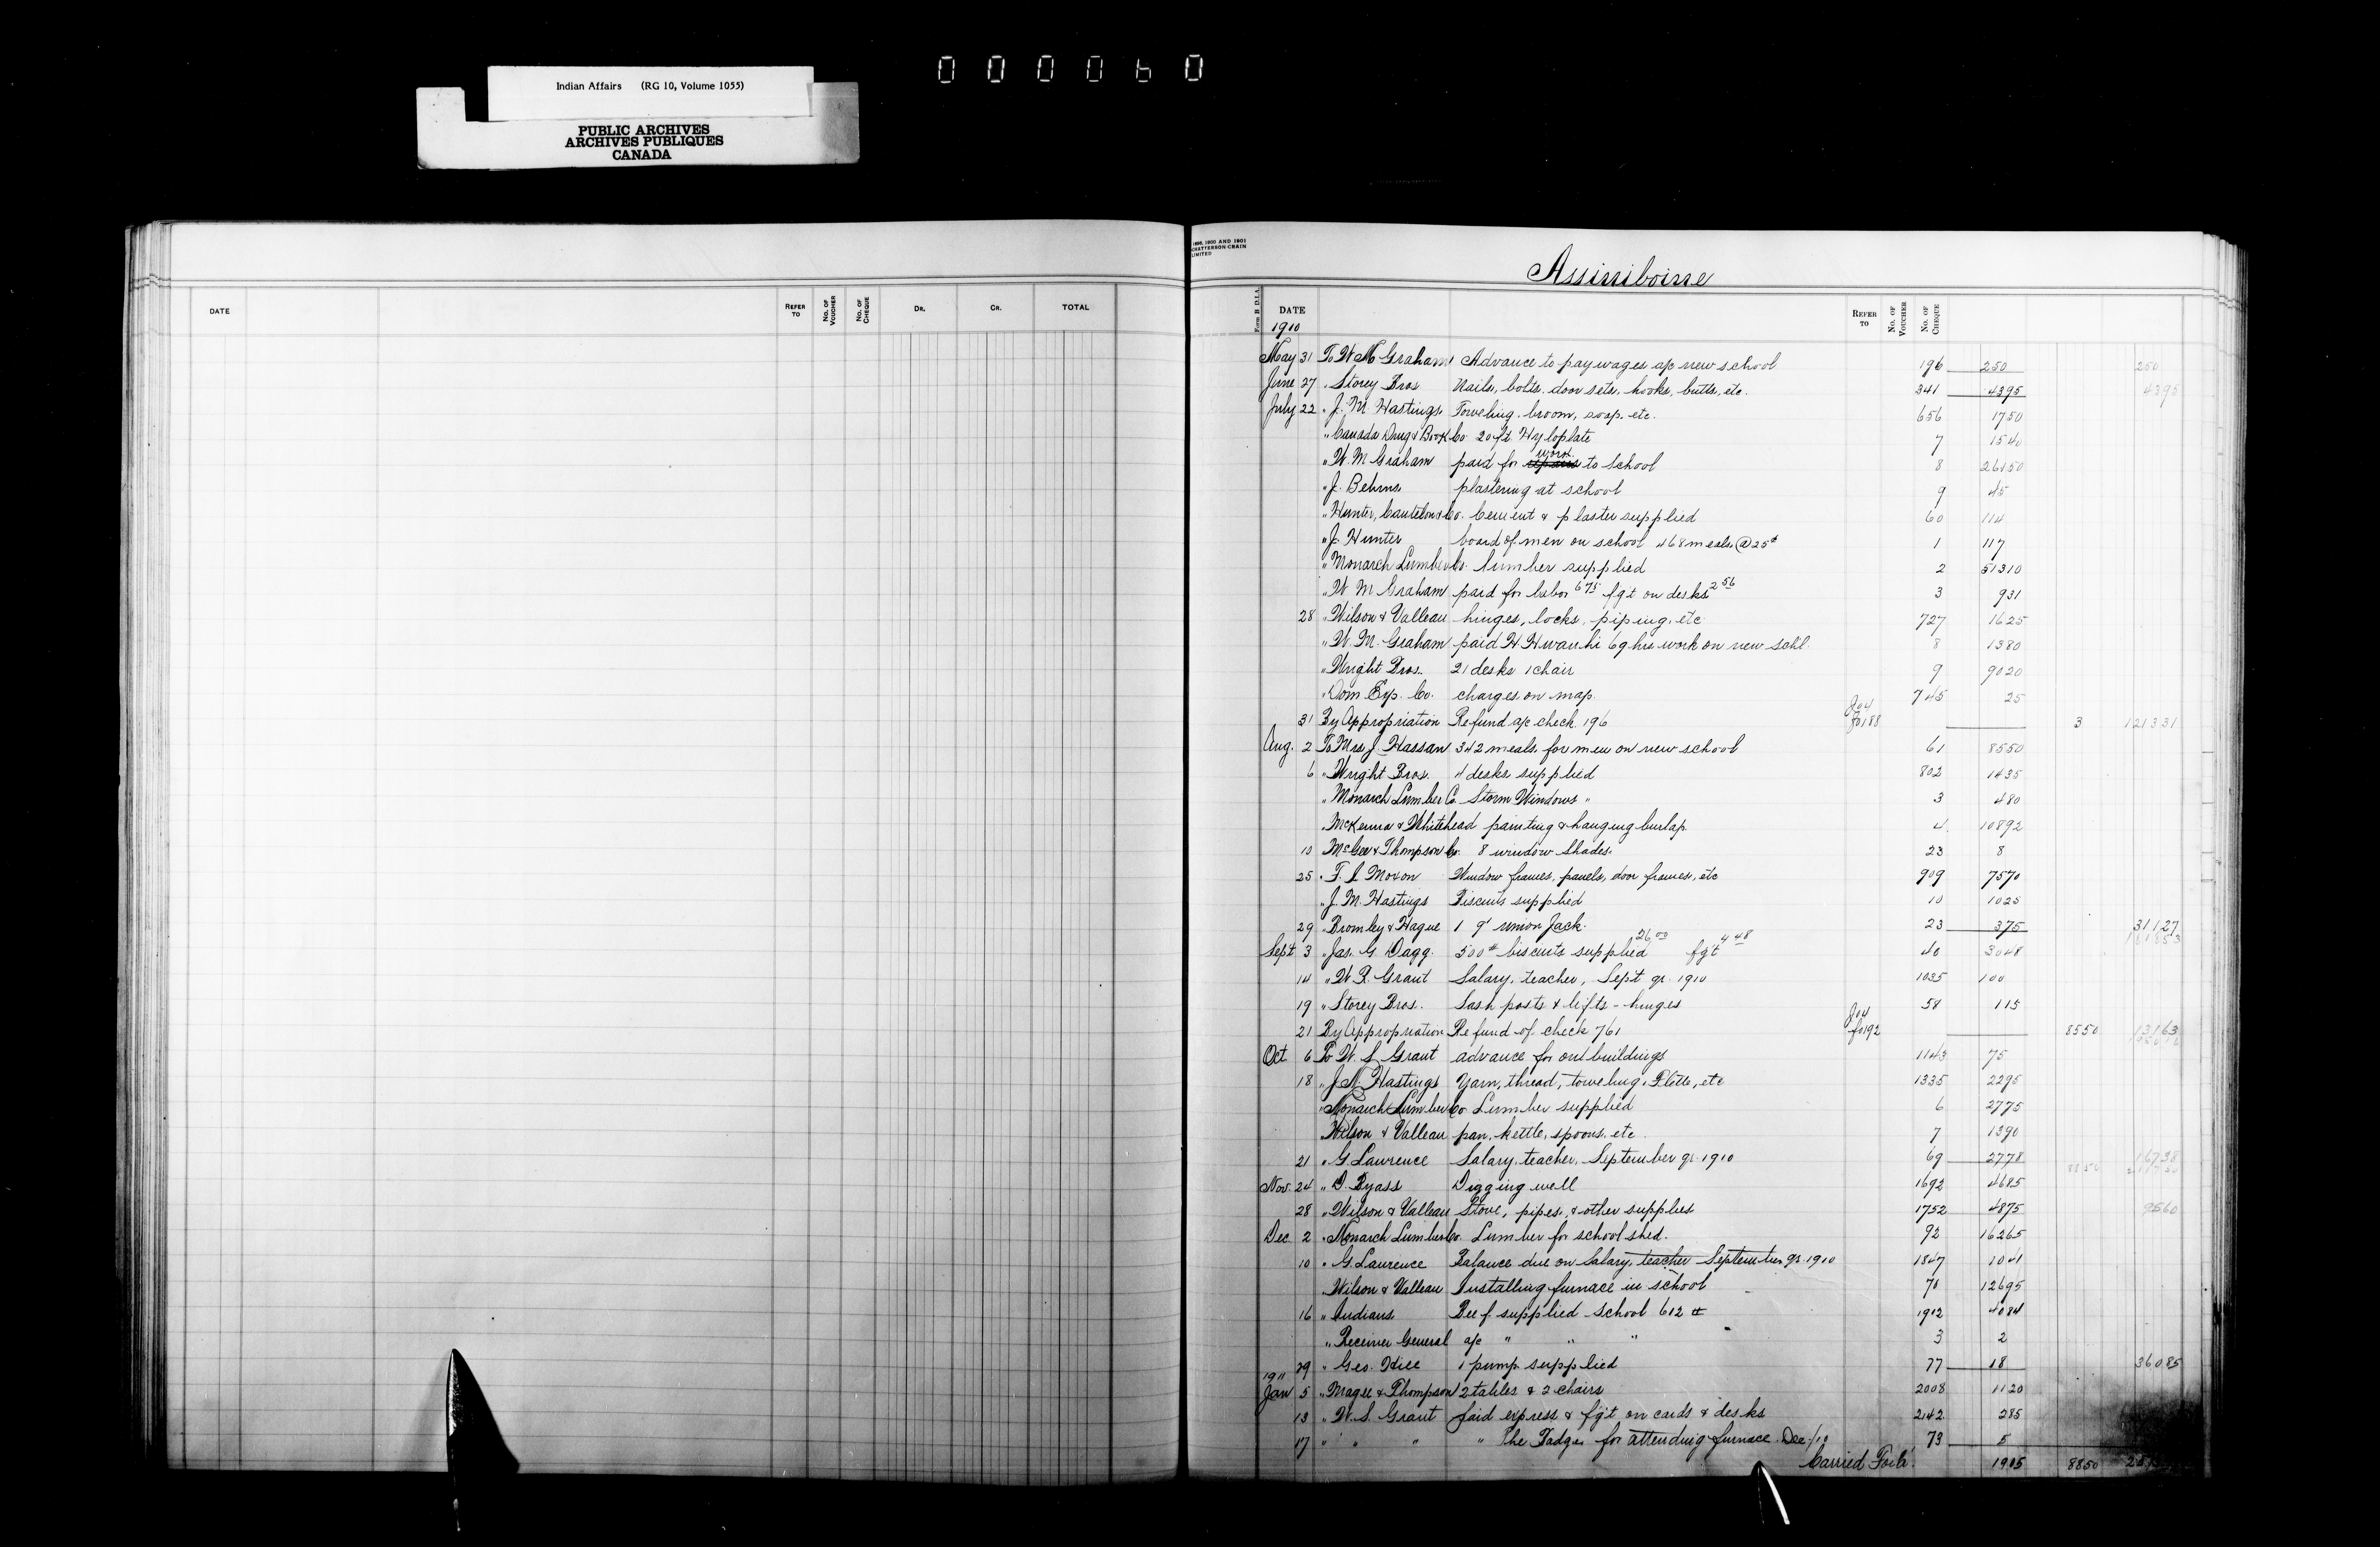 Indian Affairs (RG 10, Volume 1055)
PUBLIC ARCHIVES
ARCHIVES PUBLIQUES
CANADA
000060
1898, 1900 AND 1901
CHATTERSON-CRAIN
LIMITED
Assiniboine
DATE REFER TO No. OF VOUCHER No. OF CHEQUE DR. CR. TOTAL
Form B D.I.A. DATE REFER TO No. OF VOUCHER No. OF CHEQUE
1910
May 31 To W M Graham Advance to pay wages a/c new school 196 250 250
June 27 " Storey Bros Nails, bolts, door sets, hooks, butts, etc. 341 4395 4395
July 22 " J. M. Hastings Toweling, broom, soap, etc. 656 1750
" Canada Drug & Book Co. 20 ft. Hyloplate 7 1540
" W. M Graham paid for repairs work to school 8 26150
" J. Behms plastering at school 9 45
" Hunter, Cantelon & Co. Cement & plaster supplied 60 114
" J. Hunter board of men on school 468 meals @ 25¢ 1 117
" Monarch Lumber Co. Lumber supplied 2 51310
" W M Graham paid for labor 6 75 fgt on desks 2 56 3 931
28 " Wilson & Valleau hinges, locks, piping, etc 727 1625
" W. M. Graham paid H. 69 hrs work on new schl. 8 1380
" Wright Bros. 21 desks 1 chair 9 9020
" Dom Exp. Co. charges on map. 745 25
31 By Appropriation Refund a/c check 196 Jo4 fo188 3 121331
Aug. 2 To Mrs J. Hassan 342 meals for men on new school 61 8550
6 " Wright Bros. 4 desks supplied 802 1435
" Monarch Lumber Co. Storm Windows " 3 480
" McKenna & Whitehead painting & hanging burlap 4 10892
10 McGee & Thompson Co. 8 window shades. 23 8
25 " F. L Moxon Window frames, panels, door frames, etc 909 7570
" J. M. Hastings Biscuits supplied 10 1025
29 " Bromley & Hague 1 9' Union Jack. 23 375 31127
Sept 3 " Jas. G. Dagg. 500# biscuits supplied 26 00 fgt 4 48 40 3048
14 " W. S. Grant Salary, teacher, Sept qr. 1910 1035 100
19 " Storey Bros. Sash posts & lifts - hinges 58 115
21 By Appropriation Refund of check 761 Jo4 fo192 8550 13163
Oct 6 To W. S. Grant advance for outbuildings 1143 75
18 " J. M. Hastings Yarn, thread, toweling, F'lette, etc 1335 2295
" Monarch Lumber Co Lumber supplied 6 2775
Wilson & Valleau pan, kettle, spoons, etc. 7 1390
21 " G. Lawrence Salary, teacher, September qr. 1910 69 2778 16738
Nov. 24 " D. Byass Digging well 1692 4685
28 " Wilson & Valleau Stove, pipes, & other supplies 1752 4875 9560
Dec 2 " Monarch Lumber Co. Lumber for school shed. 92 16265
10 " G. Lawrence Balance due on Salary, teacher September qr. 1910 1847 1041
Wilson & Valleau Installing furnace in school 78 12695
16 " Indians Beef supplied school 612 # 1912 4084
" Receiver General a/c " " " 3 2
29 " Geo. Hill 1 pump supplied 77 18 36085
1911
Jan 5 " Magee & Thompson 2 tables & 2 chairs 2008 1120
13 " W. S. Grant paid express & fgt on cards & desks 2142 285
17 " " " " The Badger for attending furnace Dec/10 73 5
Carried For'd. 1905 8850